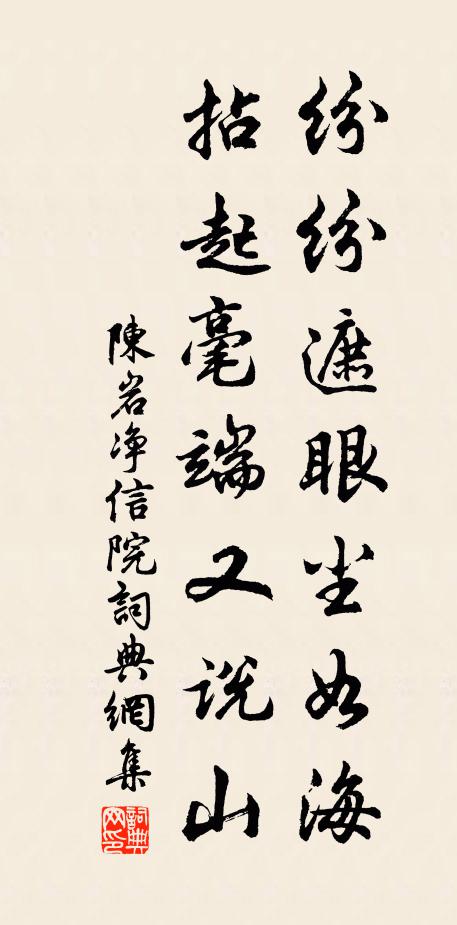 纷纷遮眼尘如海
拈起毫端又说山
陳岩净信院詞典網集
詞典网印